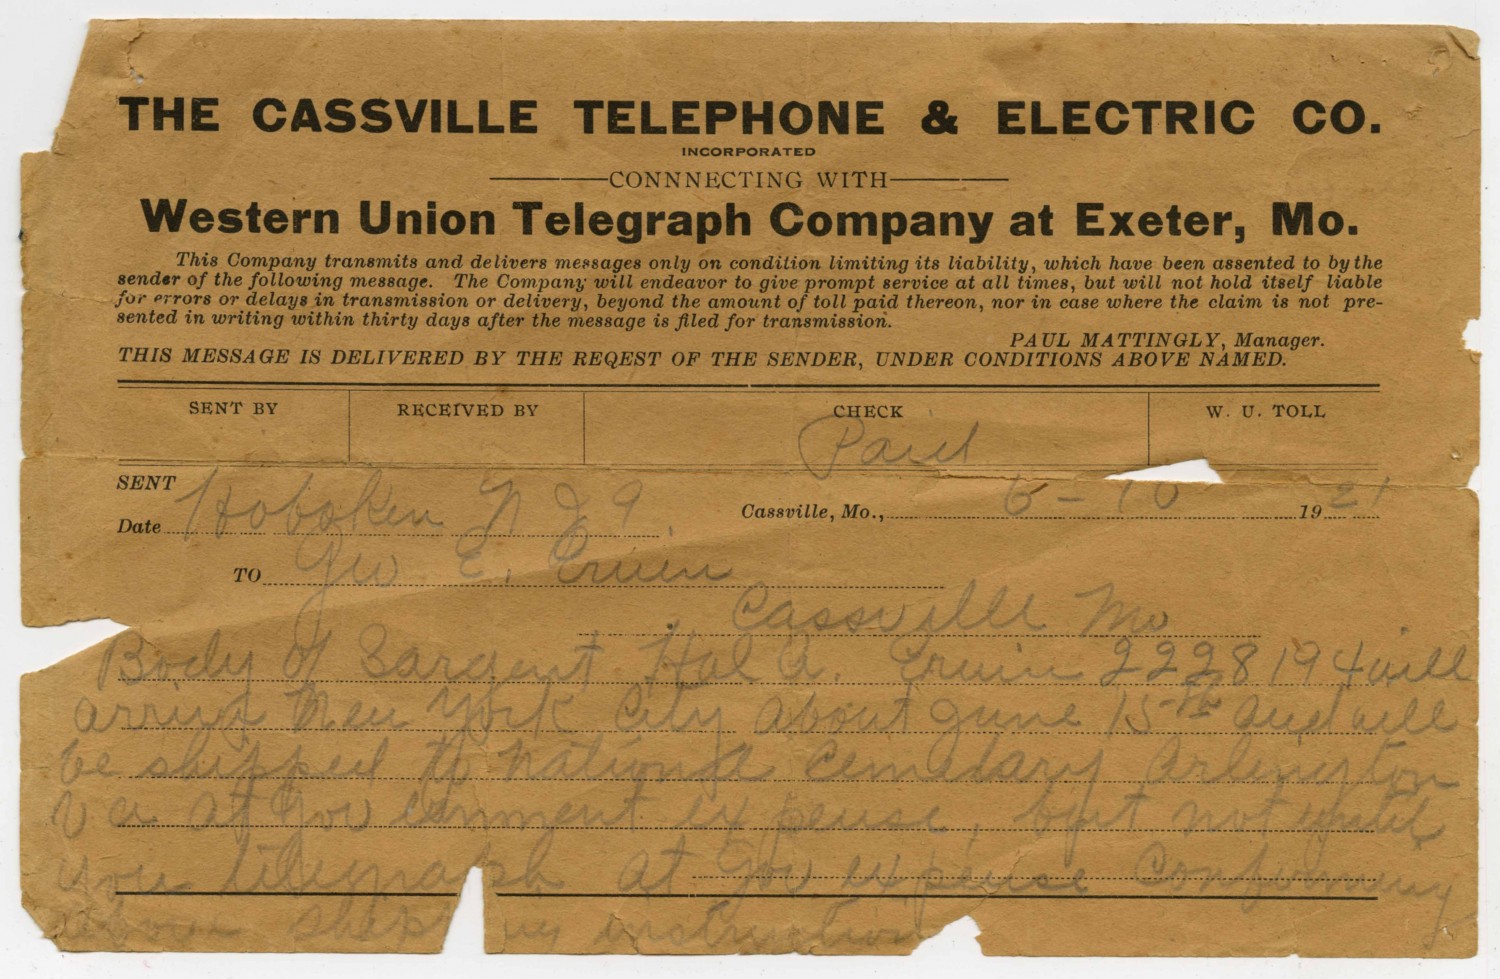 THE CASSVILLE TELEPHONE & ELECTRIC CO.
INCORPORATED
CONNNECTING WITH
Western Union Telegraph Company at Exeter, Mo.
This Company transmits and delivers messages only on condition limiting its liability, which have been assented to by the
sender of the following message. The Company will endeavor to give prompt service at all times, but will not hold itself liable
for errors or delays in transmission or delivery, beyond the amount of toll paid thereon, nor in case where the claim is not pre-
sented in writing within thirty days after the message is filed for transmission.
PAUL MATTINGLY, Manager.
THIS MESSAGE IS DELIVERED BY THE REQEST OF THE SENDER, UNDER CONDITIONS ABOVE NAMED.
SENT BY RECEIVED BY CHECK W. U. TOLL
Paid
SENT
Date Hoboken N J 9 Cassville, Mo., 6-10 1921
TO Geo E. Erwin
Cassville Mo
Body of Sargent Hal A. Erwin 2228194 will
arrive New York City about June 15th and will
be shipped to National Cemetary Arlington
Va at Government expense, but not until
you telegraph at Gov expense Confirming
above ship instruction